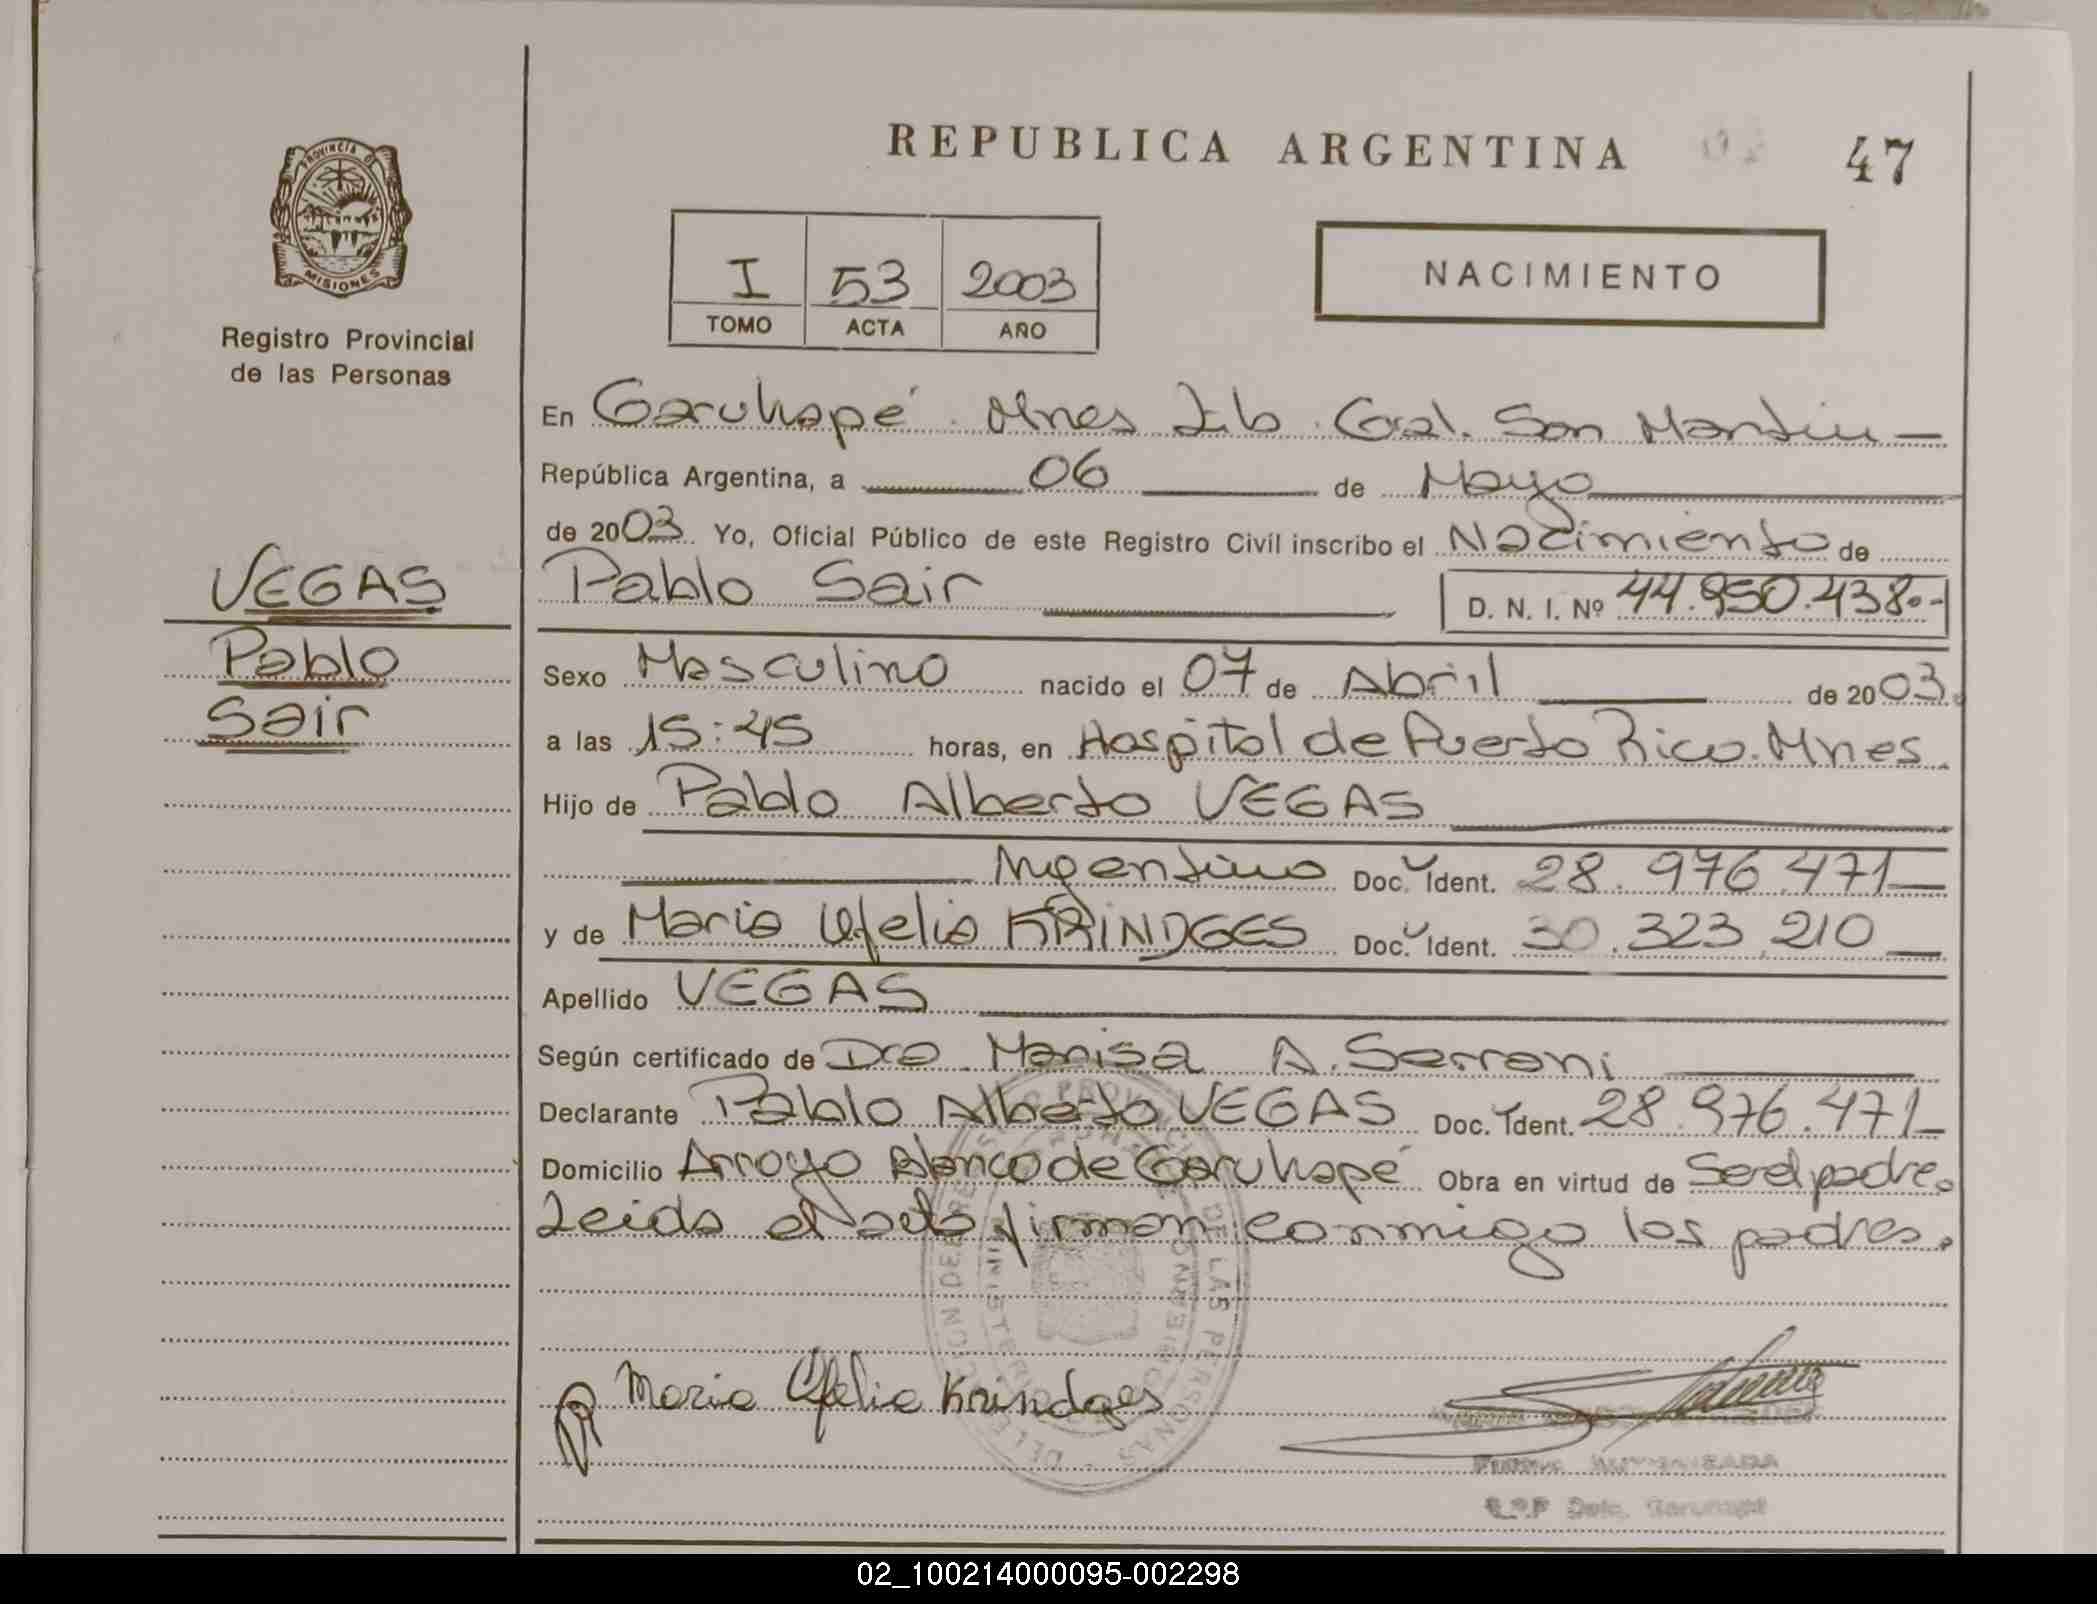 REPUBLICA ARGENTINA
47
PROVINCIA DE
MISIONES
Registro Provincial
de las Personas
I 53 2003
TOMO ACTA AÑO
NACIMIENTO
En Garuhapé Mnes Lib. Gral. San Martin
República Argentina, a 06 de Mayo
de 2003. Yo, Oficial Público de este Registro Civil inscribo el Nacimiento de
Pablo Sair D. N. I. Nº 44.950.438.-
VEGAS
Pablo
Sair
Sexo Masculino nacido el 07 de Abril de 2003.
a las 15:45 horas, en Hospital de Puerto Rico. Mnes.
Hijo de Pablo Alberto VEGAS
Argentino Doc. Ident. 28.976.471
y de Maria Ofelia KRINDGES Doc. Ident. 30.323.210
Apellido VEGAS
Según certificado de Dra. Marisa A. Serroni
Declarante Pablo Alberto VEGAS Doc. Ident. 28.976.471
Domicilio Arroyo Blanco de Garuhapé Obra en virtud de Ser el padre.
Leida el acta firman conmigo los padres.
Maria Ofelia Krindges
02_100214000095-002298